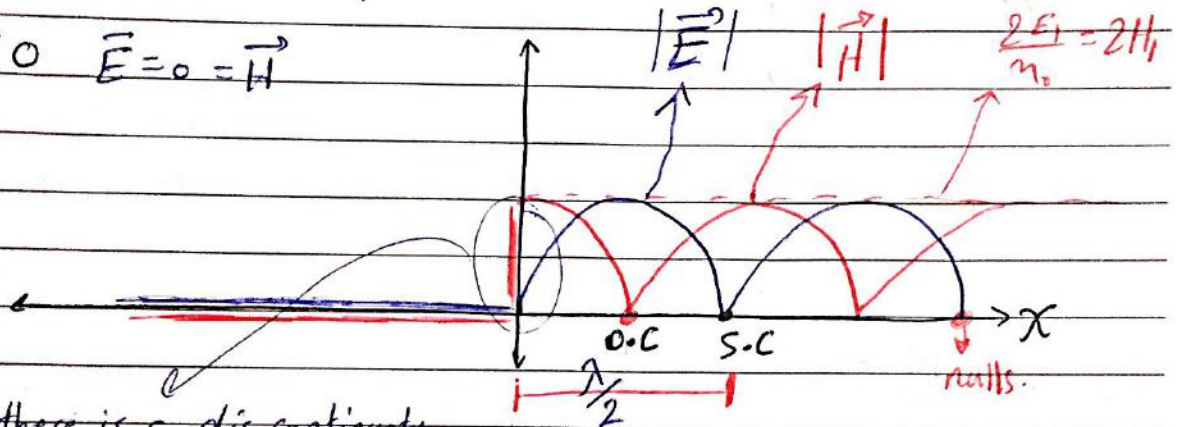 O $\vec{E}=0=\vec{H}$ $|\vec{E}|$ $|\vec{H}|$ $\frac{2E_1}{\eta_0}=2H_1$
O.C S.C x
λ/2 nulls.
there is a discontinuity